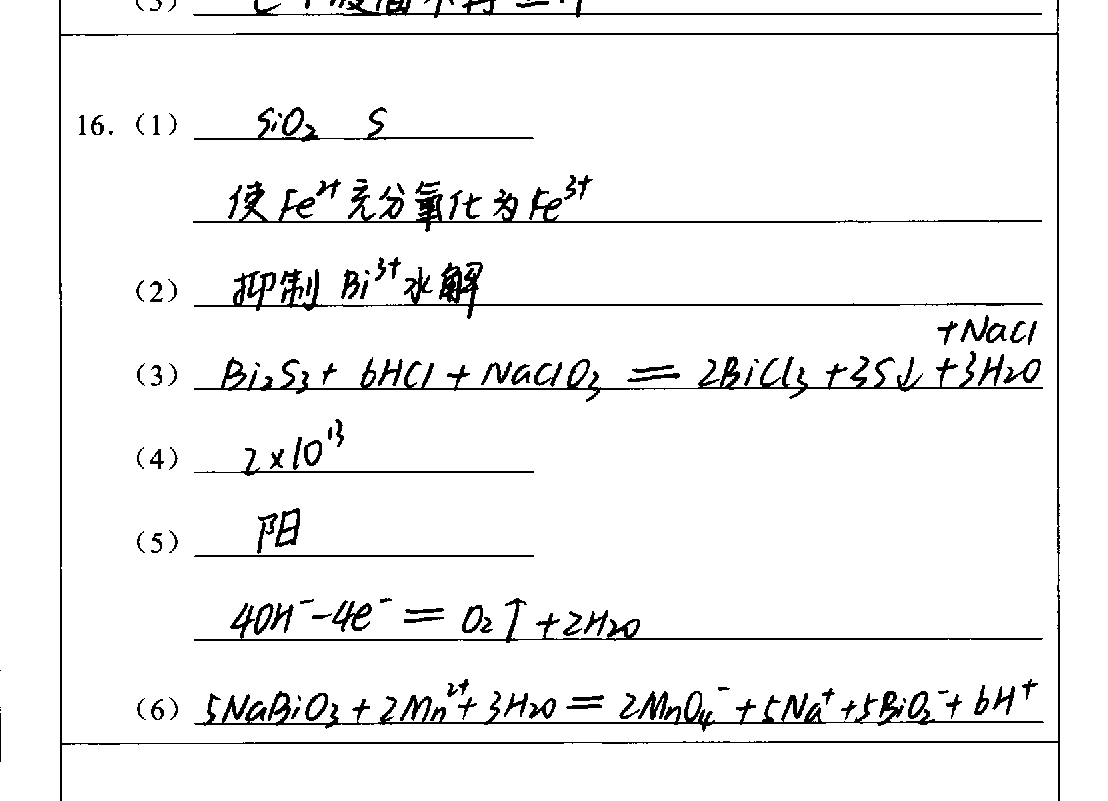 (3)
16.(1) SiO₂ S
使Fe²⁺充分氧化为Fe³⁺
(2) 抑制Bi³⁺水解
+NaCl
(3) Bi₂S₃+6HCl+NaClO₃=2BiCl₃+3S↓+3H₂O
(4) 2×10¹³
(5) 阳
4OH⁻-4e⁻=O₂↑+2H₂O
(6) 5NaBiO₃+2Mn²⁺+3H₂O=2MnO₄⁻+5Na⁺+5BiO₂⁻+6H⁺